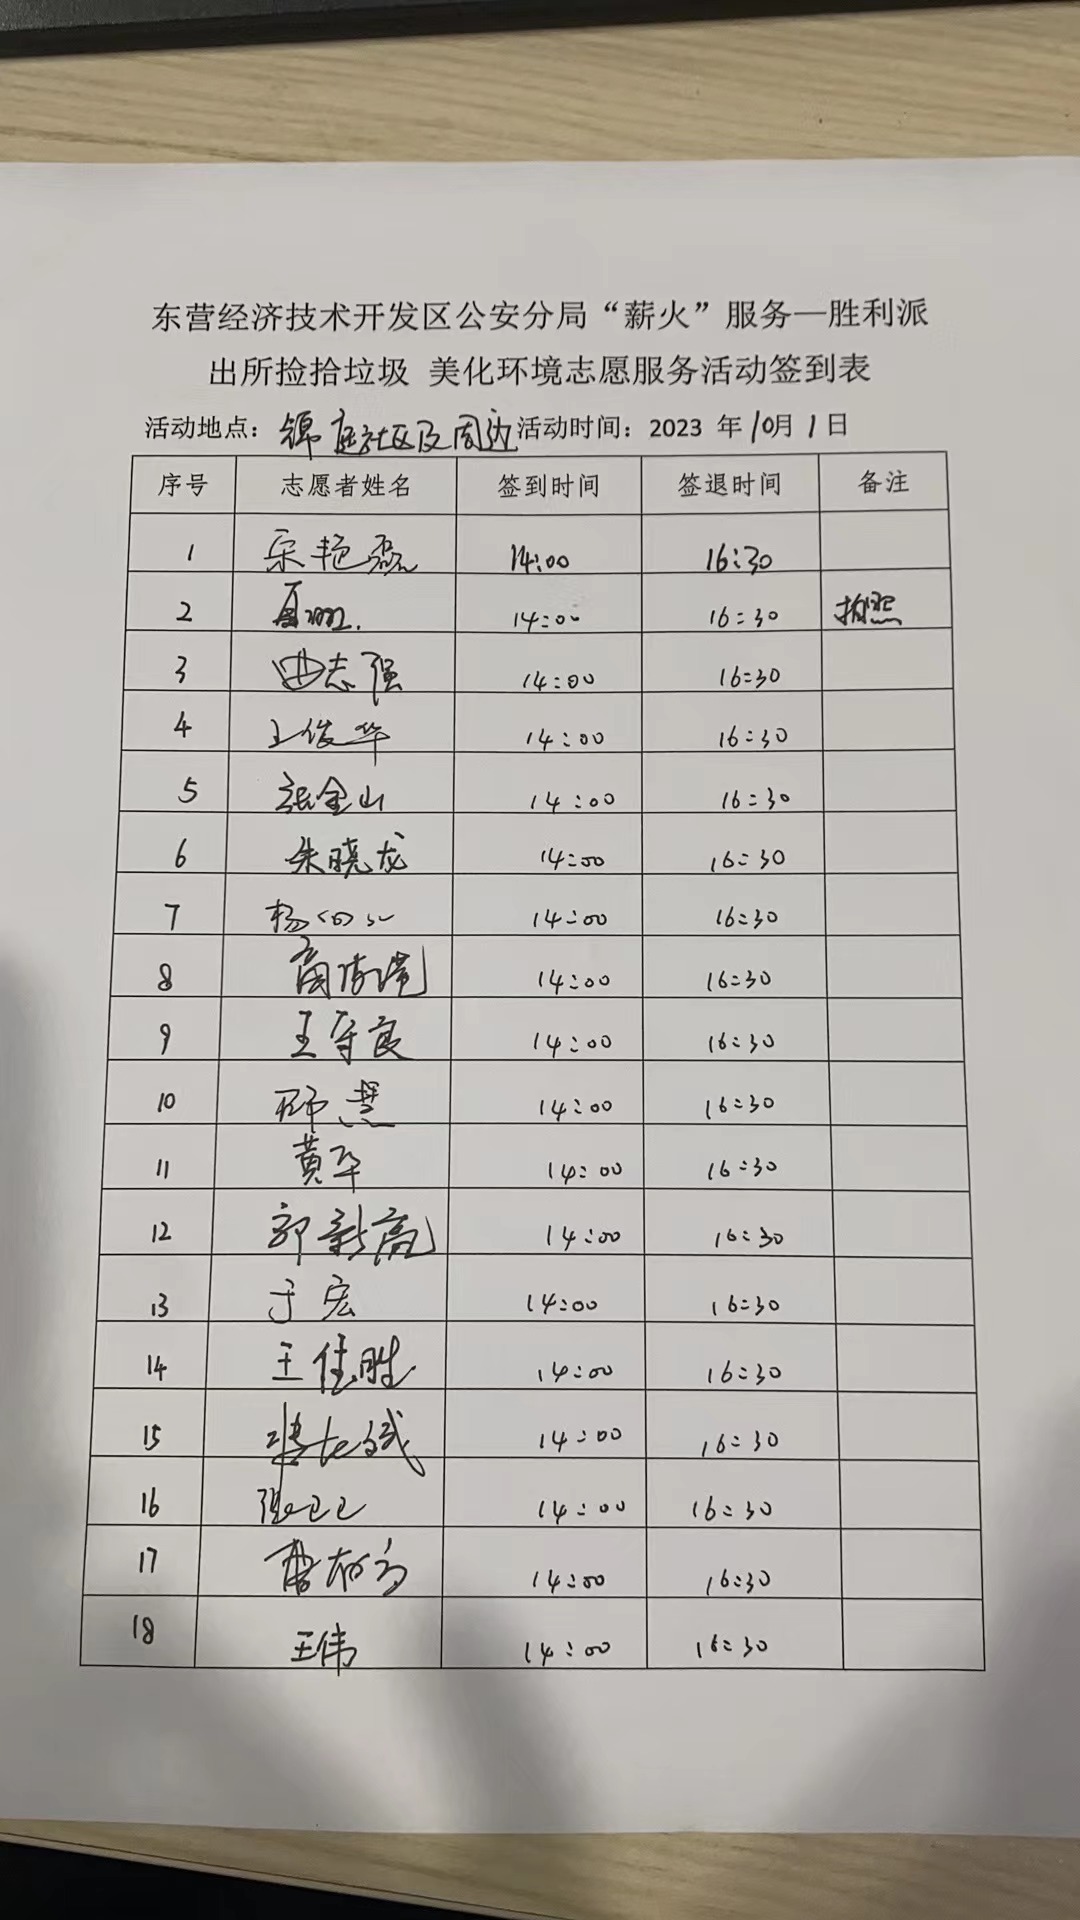 东营经济技术开发区公安分局“薪火”服务—胜利派
出所捡拾垃圾 美化环境志愿服务活动签到表
活动地点：锦庭社区及周边 活动时间：2023 年10月1日
序号 志愿者姓名 签到时间 签退时间 备注
1 宋艳磊 14:00 16:30
2 14:00 16:30 拍照
3 曲志强 14:00 16:30
4 王俊华 14:00 16:30
5 张金山 14:00 16:30
6 朱晓龙 14:00 16:30
7 杨 14:00 16:30
8 14:00 16:30
9 王守良 14:00 16:30
10 慧 14:00 16:30
11 黄华 14:00 16:30
12 郭新高 14:00 16:30
13 于宏 14:00 16:30
14 王佳胜 14:00 16:30
15 14:00 16:30
16 14:00 16:30
17 14:00 16:30
18 王伟 14:00 16:30